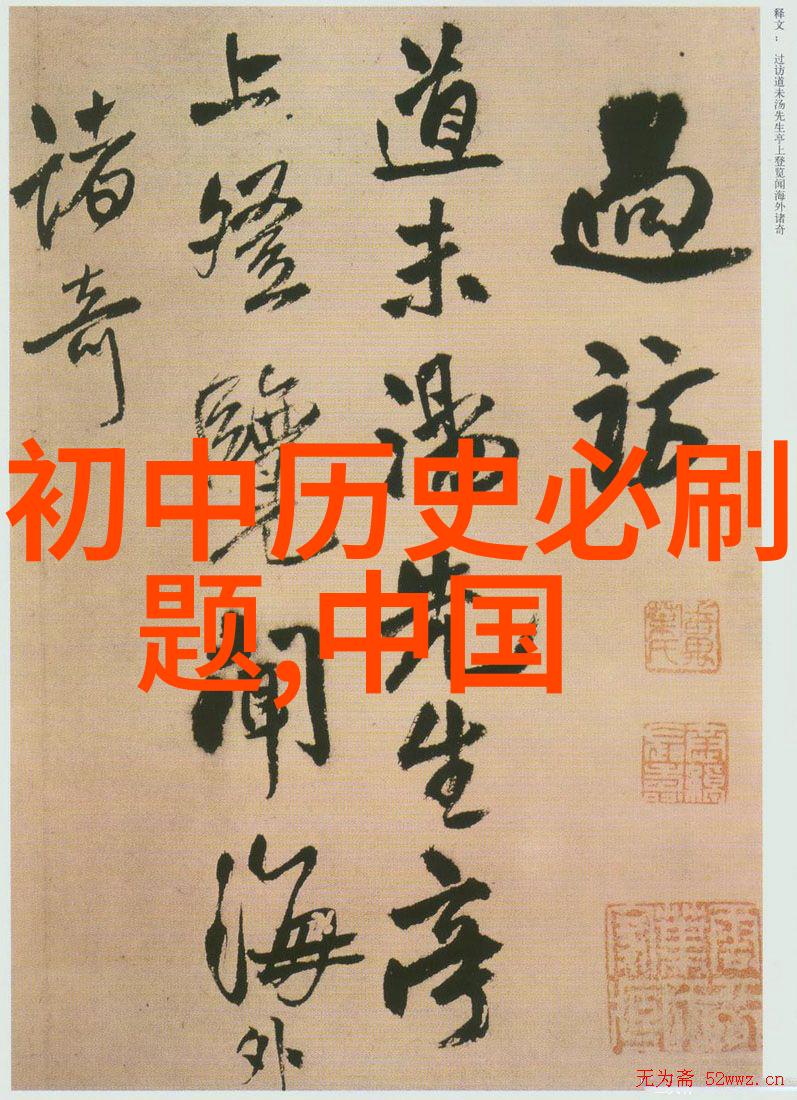 释文： 过访道未汤先生亭上登览闻海外诸奇
過訪
道未湯先生亭
上登覽聞海外
諸奇
初中历史必刷
题,中国
无为斋 52wwz.cn